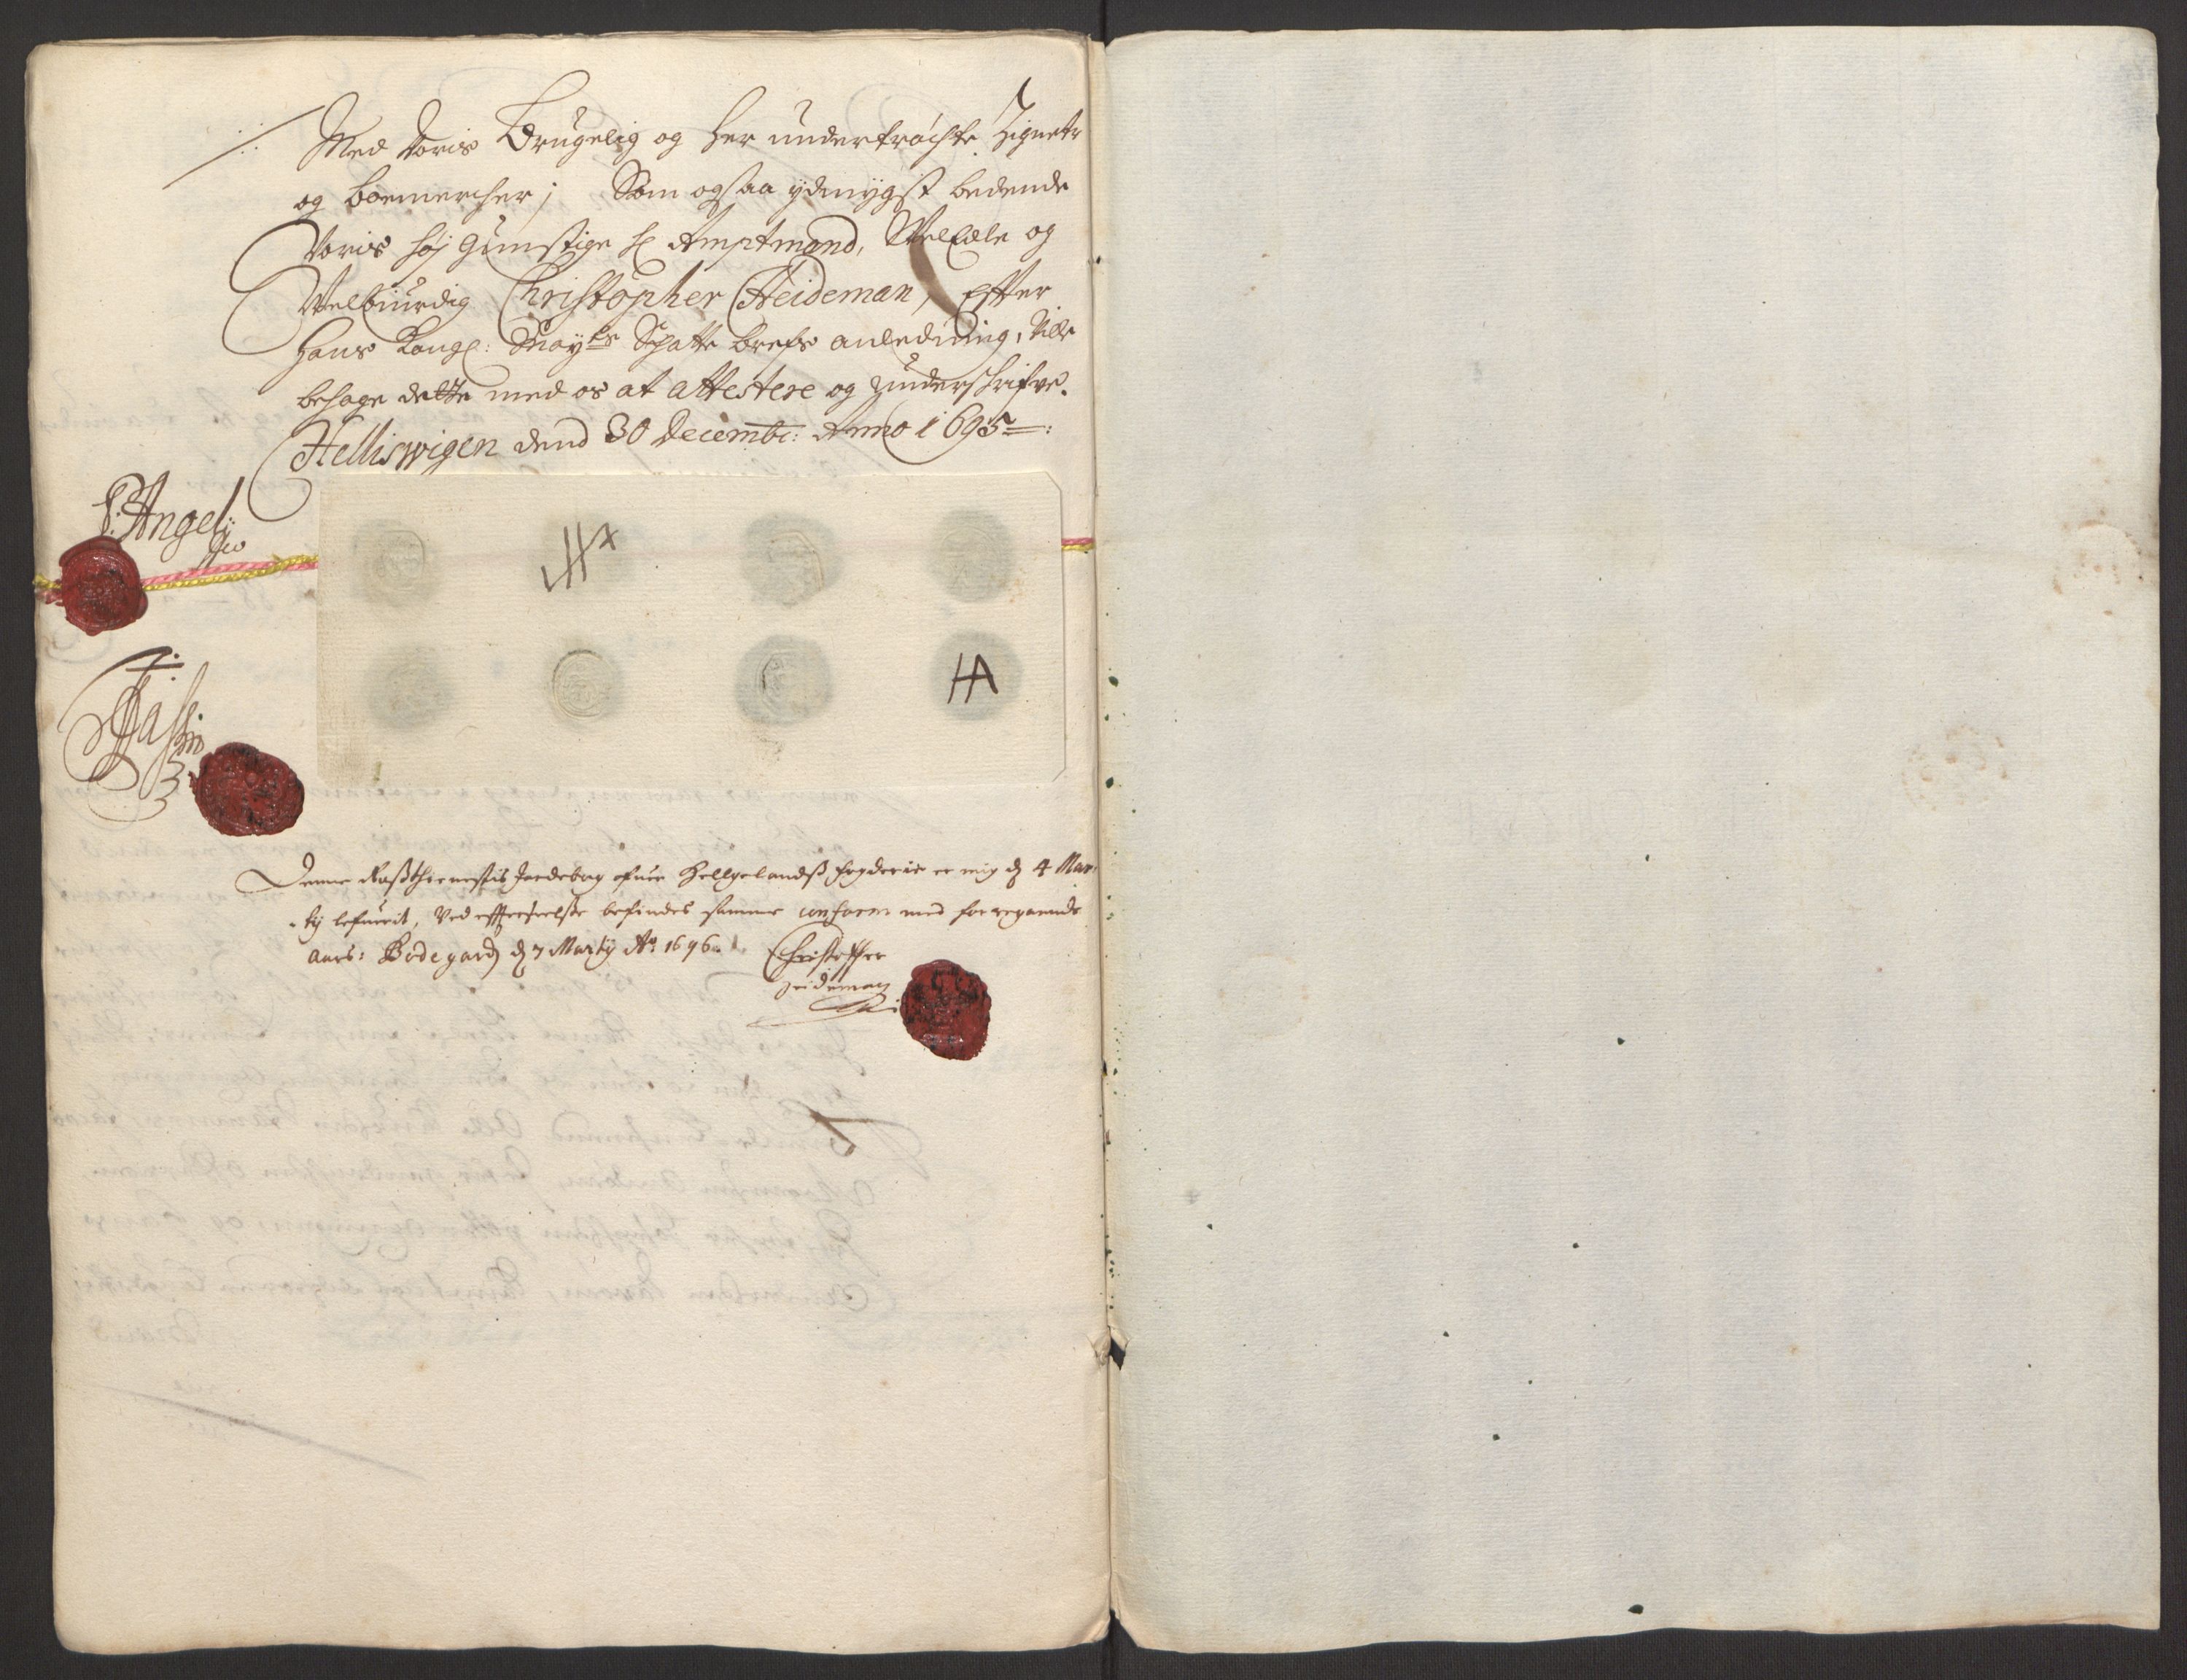 Med voris Brugelig og her undertröchte Zigneter
og boemercher; Som ogsaa ydmygst bedende
Voris høj gunstige H Amptmand, WelEdle og
Welbiurdig Christopher Heideman, Efter
Hans Kongl: Mayts Schatte brefs anledning, Ville
behage dette med os at Attestere og Underschrifve.
Helliswigen dend 30 Decembr: Anno 1695
P: Angel
HA
Denne Roßthienestis Jordebog ofuer Hellgelandß fogderie er mig d 4 Mar-
tij lefuerit, Ved effterseelse befindes samme conform med forregaaende
aars: Bodegard d 7 Martij Ao 1696.
Christoffer
Heideman